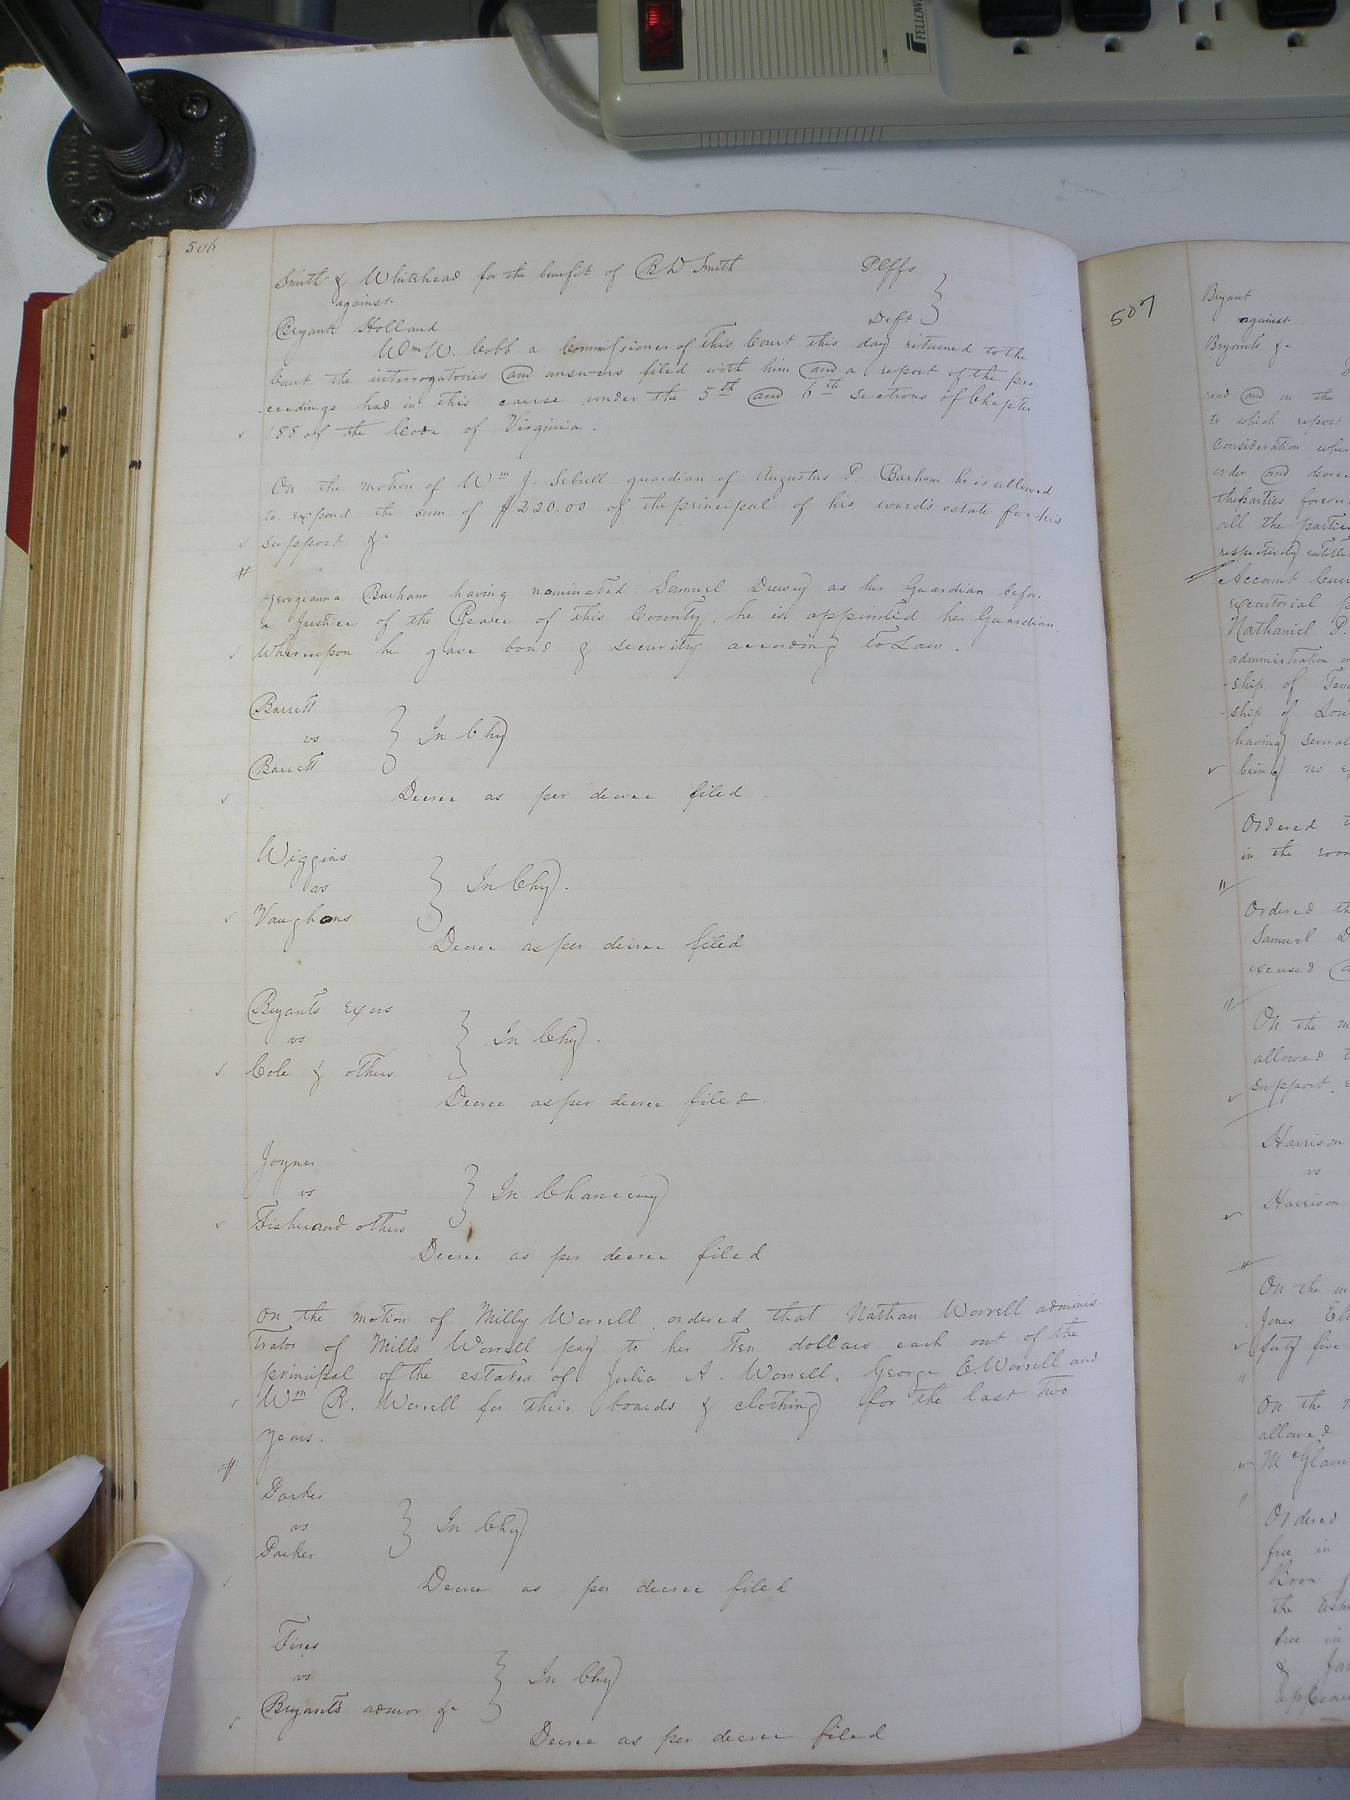 FELLOWES
506
Smith & Whitehead for the benefit of R D Smith Plffs
against
Bryant Holland Deft
Wm W. Cobb a Commissioner of this Court this day returned to the
Court the interrogatories and answers filed with him and a report of the pro
ceedings had in this cause under the 5th and 6th sections of Chapter
188 of the Code of Virginia.
On the motion of Wm J. Sebrell guardian of Augustus P. Barham he is allowed
to expend the sum of $220.00 of the principal of his wards estate for his
support &c
Georgeanna Barham having nominated Samuel Drewry as her Guardian before
a Justice of the Peace of this County, he is appointed her Guardian.
Whereupon he gave bond & security according to Law.
Barrett
vs
Barrett
In Chy
Decree as per decree filed.
Wiggins
vs
Vaughans
In Chy.
Decree as per decree filed
Bryants Exors
vs
Cole & others
In Chy.
Decree as per decree filed.
Joyner
vs
Fisher and others
In Chancery
Decree as per decree filed
On the motion of Milly Worrell ordered that Nathan Worrell adminis-
trator of Mills Worrell pay to her Ten dollars each out of the
principal of the estates of Julia A. Worrell, George E. Worrell and
Wm R. Worrell for their boards & clothing for the last two
years.
Parker
vs
Parker
In Chy
Decree as per decree filed
vs
Bryant's admor &c
In Chy
Decree as per decree filed
507
Bryant
against
Bryants &c
read and on the
to which report
consideration
order and decree
the parties
all the parties
respectively
Account
executorial
Nathaniel P.
administration
-ship of
-ship of
having
being no
Ordered
in the room
Ordered th
Samuel D
excused
On the m
allowed t
support
Harrison
vs
Harrison
On the m
Jones
forty five
On the
allowed
Ordered
free in
Born
the
free in